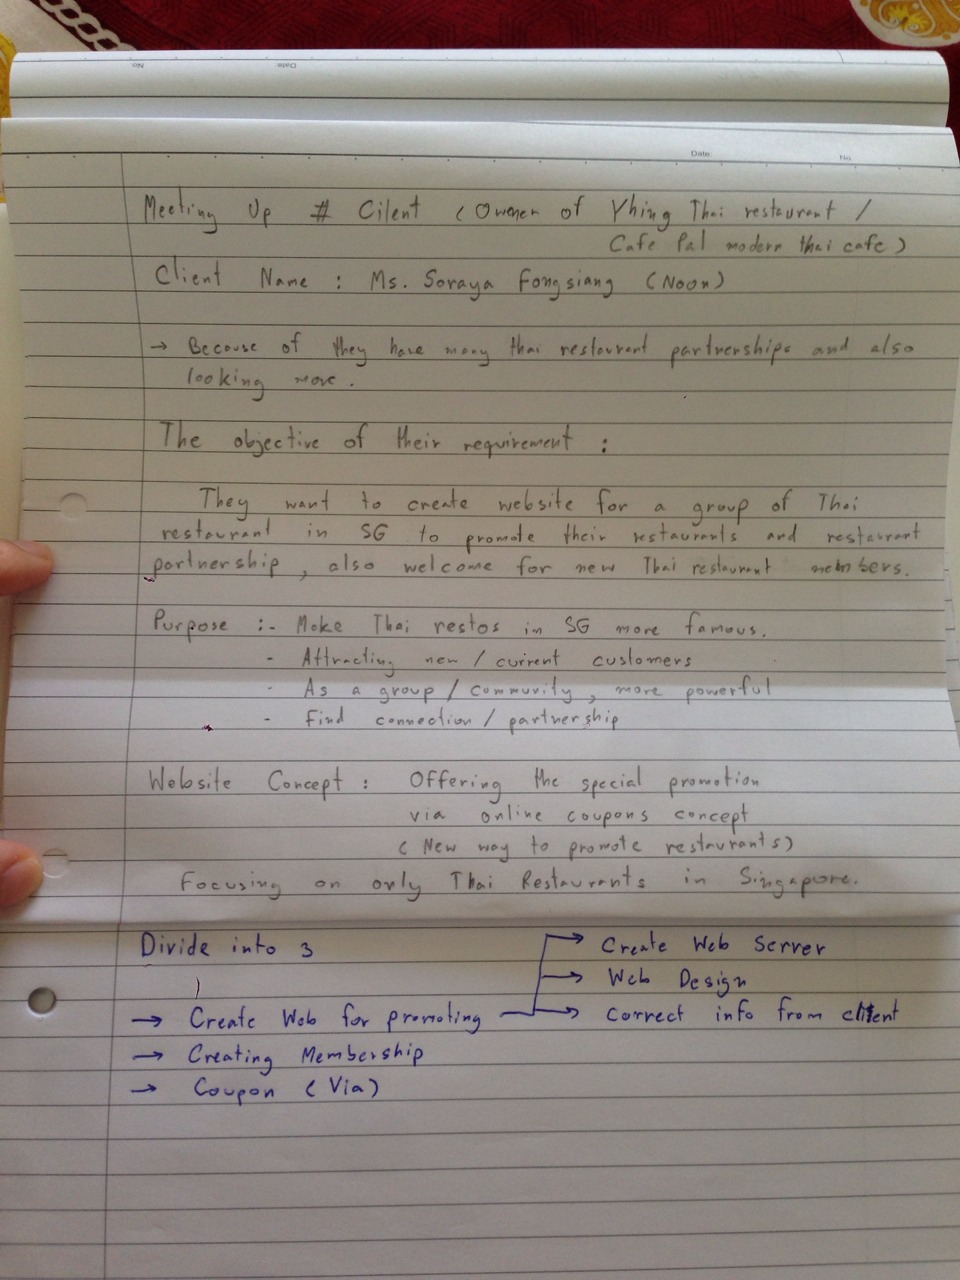 No.
Date
Date
No.
Meeting Up # Cilent (Owner of Yhing Thai restaurant /
Cafe Pal modern thai cafe)
Client Name : Ms. Soraya Fongsiang (Noon)
→ Because of they have many thai restaurant partnerships and also
looking more.
The objective of their requirement :
They want to create website for a group of Thai
restaurant in SG to promote their restaurants and restaurant
partnership, also welcome for new Thai restaurant members.
Purpose :- Make Thai restos in SG more famous.
- Attracting new / current customers
- As a group / community, more powerful
- Find connection / partnership
Website Concept : Offering the special promotion
via online coupons concept
(New way to promote restaurants)
Focusing on only Thai Restaurants in Singapore.
Divide into 3
→ Create Web Server
→ Web Design
→ Create Web for promoting → correct info from client
→ Creating Membership
→ Coupon (Via)